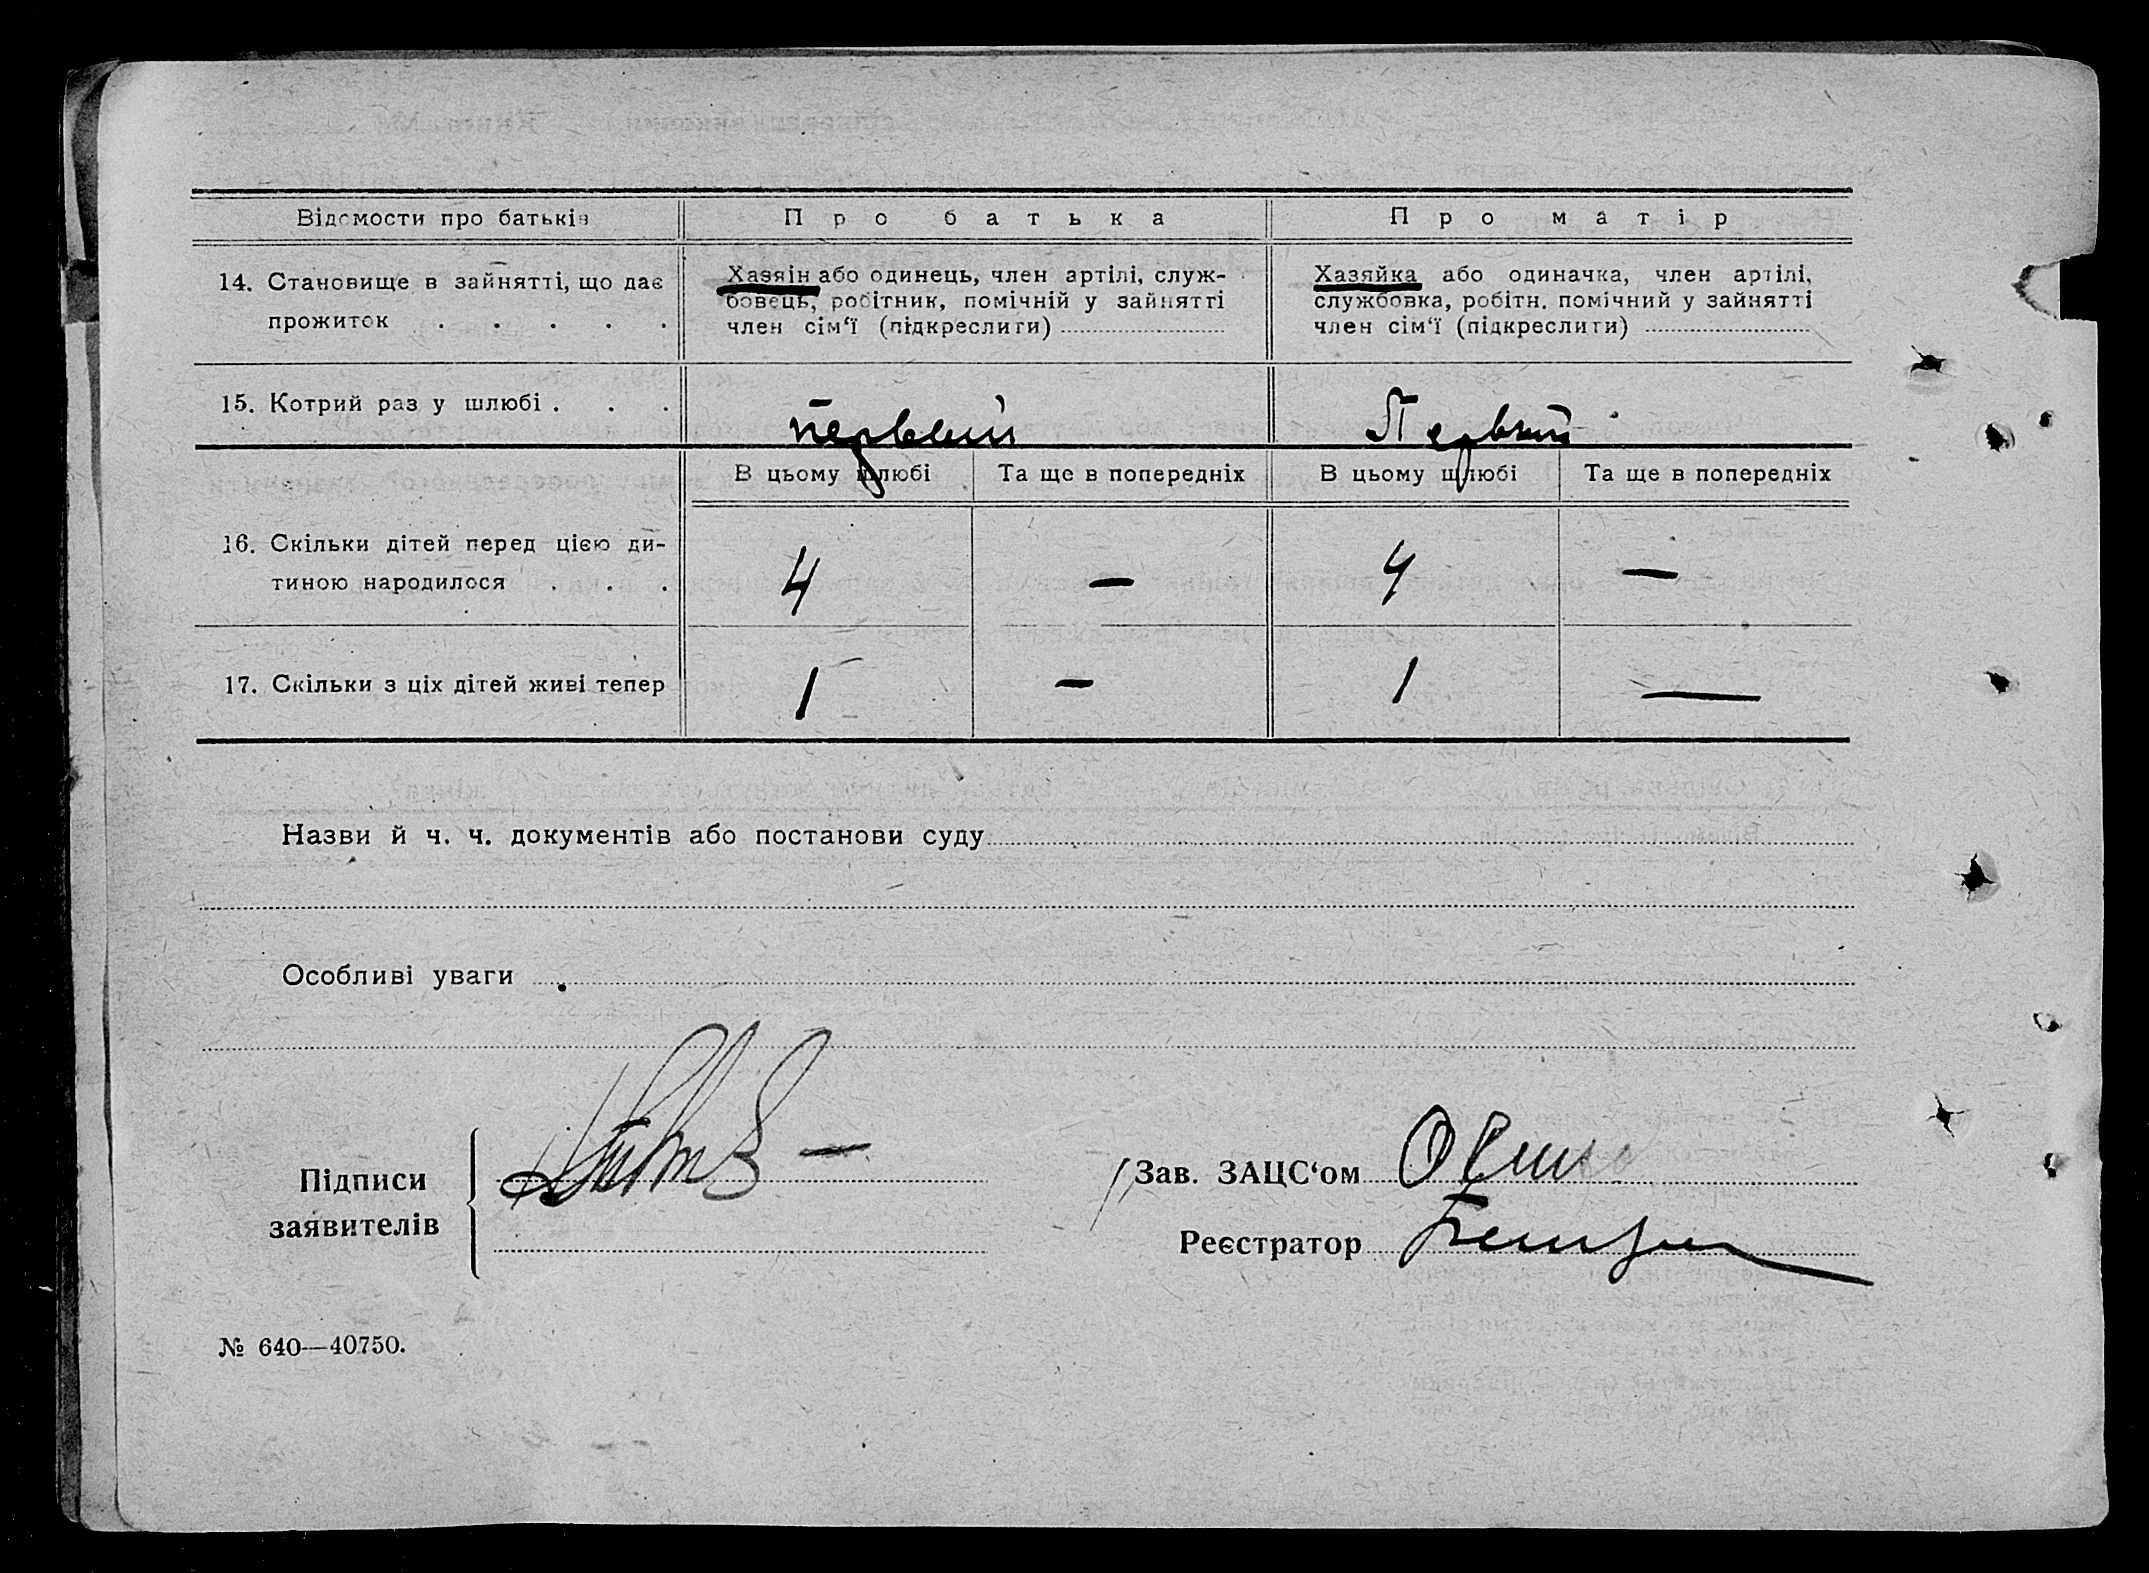 Відомости про батьків
Про батька
Про матір
14. Становище в зайнятті, що дає
прожиток . . . . .
Хазяін або одинець, член артілі, служ-
бовець, робітник, помічній у зайнятті
член сім‘ї (підкреслити)
Хазяйка або одиначка, член артілі,
службовка, робітн. помічний у зайнятті
член сім‘ї (підкреслити)
15. Котрий раз у шлюбі . . .
первый
Первый
В цьому шлюбі
Та ще в попередніх
В цьому шлюбі
Та ще в попередніх
16. Скільки дітей перед цією ди-
тиною народилося . . .
4
—
4
—
17. Скільки з ціх дітей живі тепер
1
—
1
—
Назви й ч. ч. документів або постанови суду
Особливі уваги
Підписи
заявителів
Зав. ЗАЦС‘ом
Реєстратор
№ 640—40750.